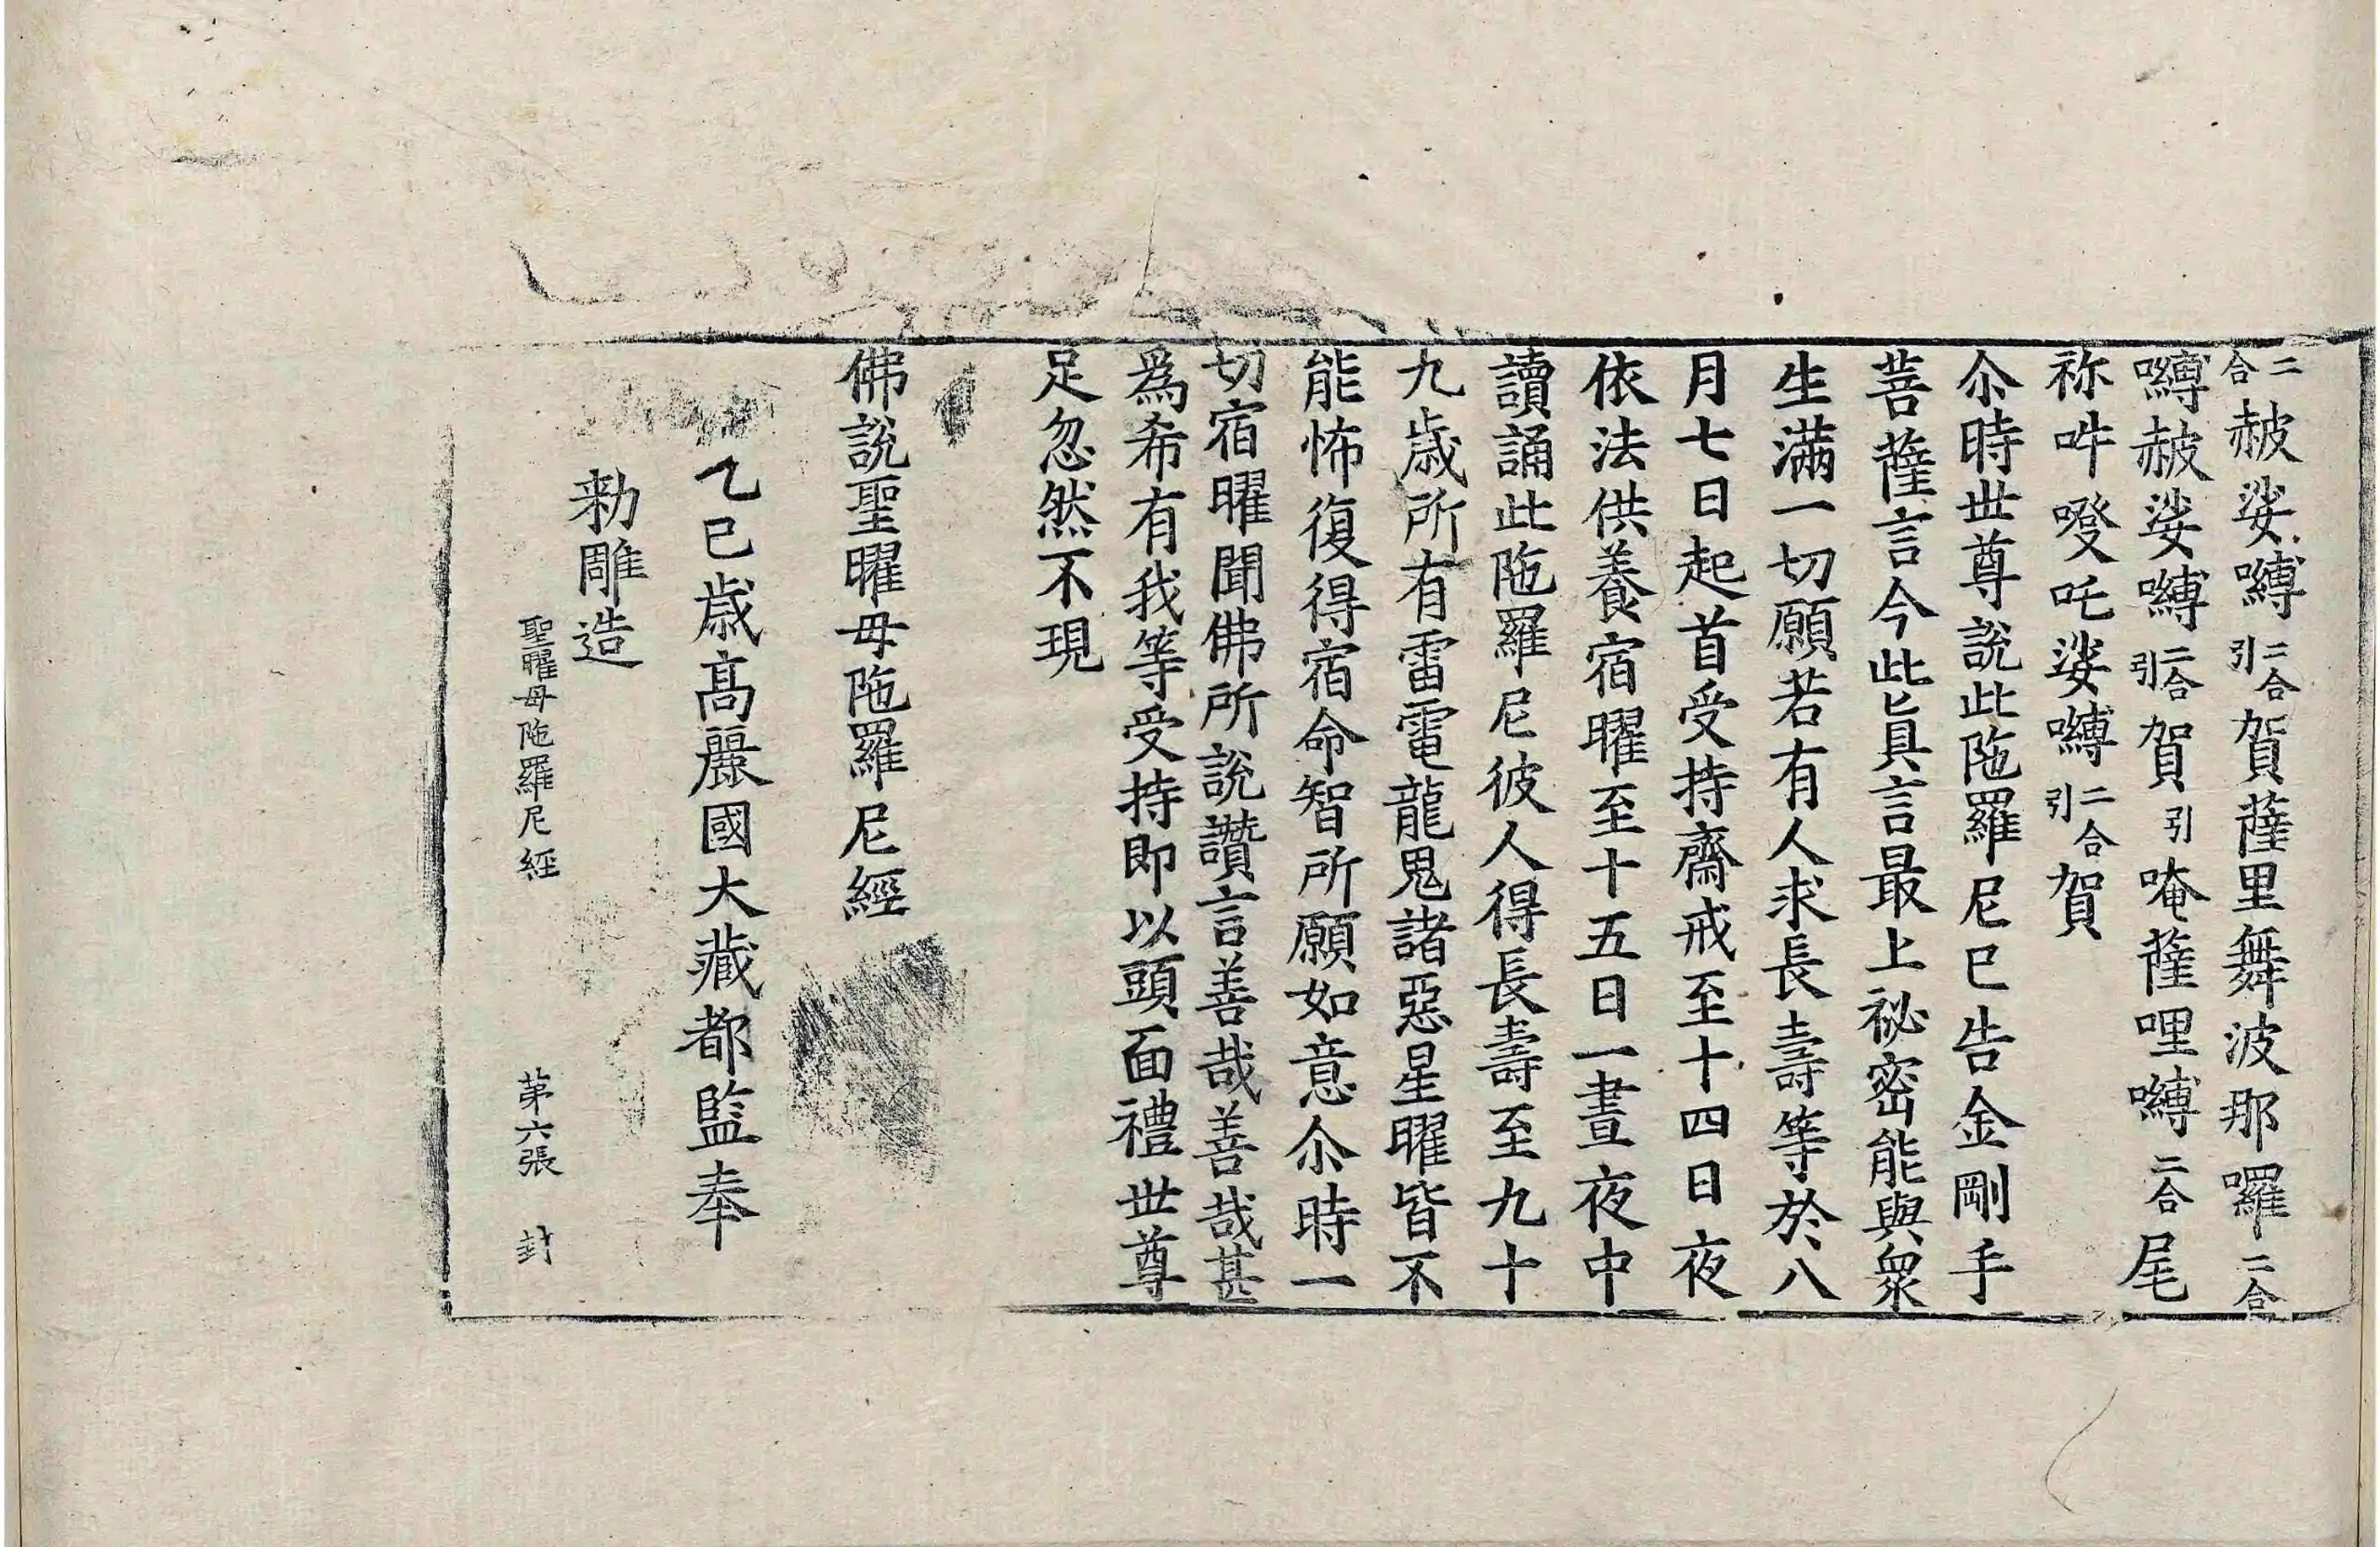 二合赧娑嚩二合引賀薩里舞波那囉二合
嚩赧娑嚩二合引賀引唵薩哩嚩二合尾
祢吽㗶吒娑嚩二合引賀
尒時世尊說此陁羅尼已告金剛手
菩薩言今此眞言最上祕密能與衆
生滿一切願若有人求長壽等於八
月七日起首受持齋戒至十四日夜
依法供養宿曜至十五日一晝夜中
讀誦此陁羅尼彼人得長壽至九十
九歲所有雷電龍鬼諸惡星曜皆不
能怖復得宿命智所願如意尒時一
切宿曜聞佛所說讚言善哉善哉甚
爲希有我等受持即以頭面禮世尊
足忽然不現
佛說聖曜母陁羅尼經
乙巳歲高麗國大藏都監奉
勑雕造
聖曜母陁羅尼經 第六張 封